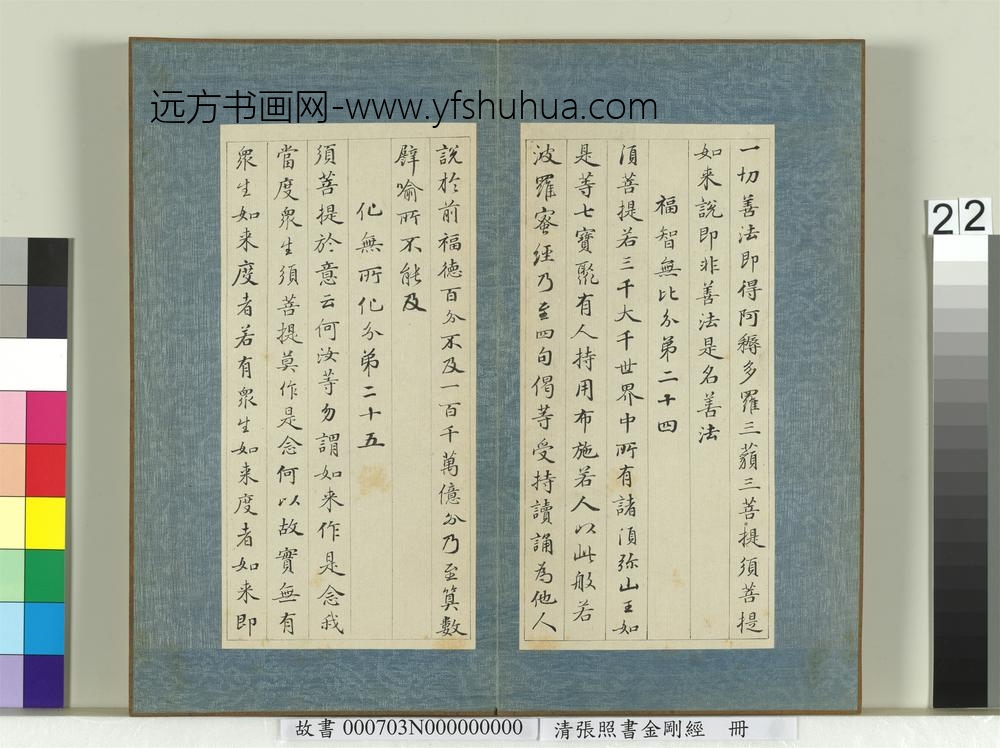 远方书画网-www.yfshuhua.com
一切善法即得阿耨多羅三藐三菩提須菩提
如来說即非善法是名善法
福智無比分第二十四
須菩提若三千大千世界中所有諸須弥山王如
是等七寶聚有人持用布施若人以此般若
波羅蜜經乃至四句偈等受持讀誦為他人
說於前福德百分不及一百千萬億分乃至筭數
譬喻所不能及
化無所化分第二十五
須菩提於意云何汝等勿謂如来作是念我
當度衆生須菩提莫作是念何以故實無有
衆生如来度者若有衆生如来度者如来即
22
故書 000703N000000000 清張照書金剛經 冊